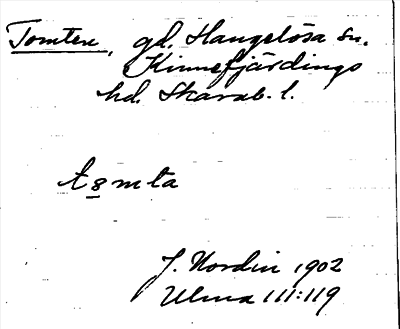 Tomten, gd. Hangelösa sn.
Kinnefjärdings
hd. Skarab. l.
tȣmta
J. Nordin 1902
Ulma 111:119